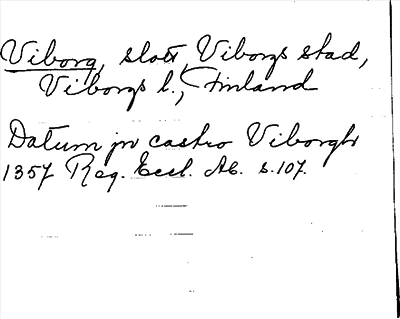 Viborg, slott, Viborgs stad,
Viborgs l., Finland
Datum in castro Viborgh
1357 Reg. Eccl. Ab. s. 107.